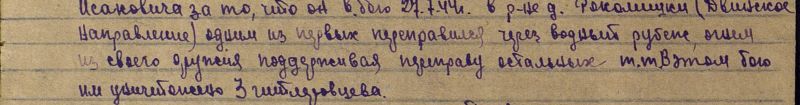 Исаковича за то, что он в бою 27.7.44г. в р-не д. Рокалишки (Двинское
направление) одним из первых переправился через водный рубеж, огнем
из своего оружия поддерживая переправу остальных т.т. В этом бою
им уничтожено 3 гитлеровцева.